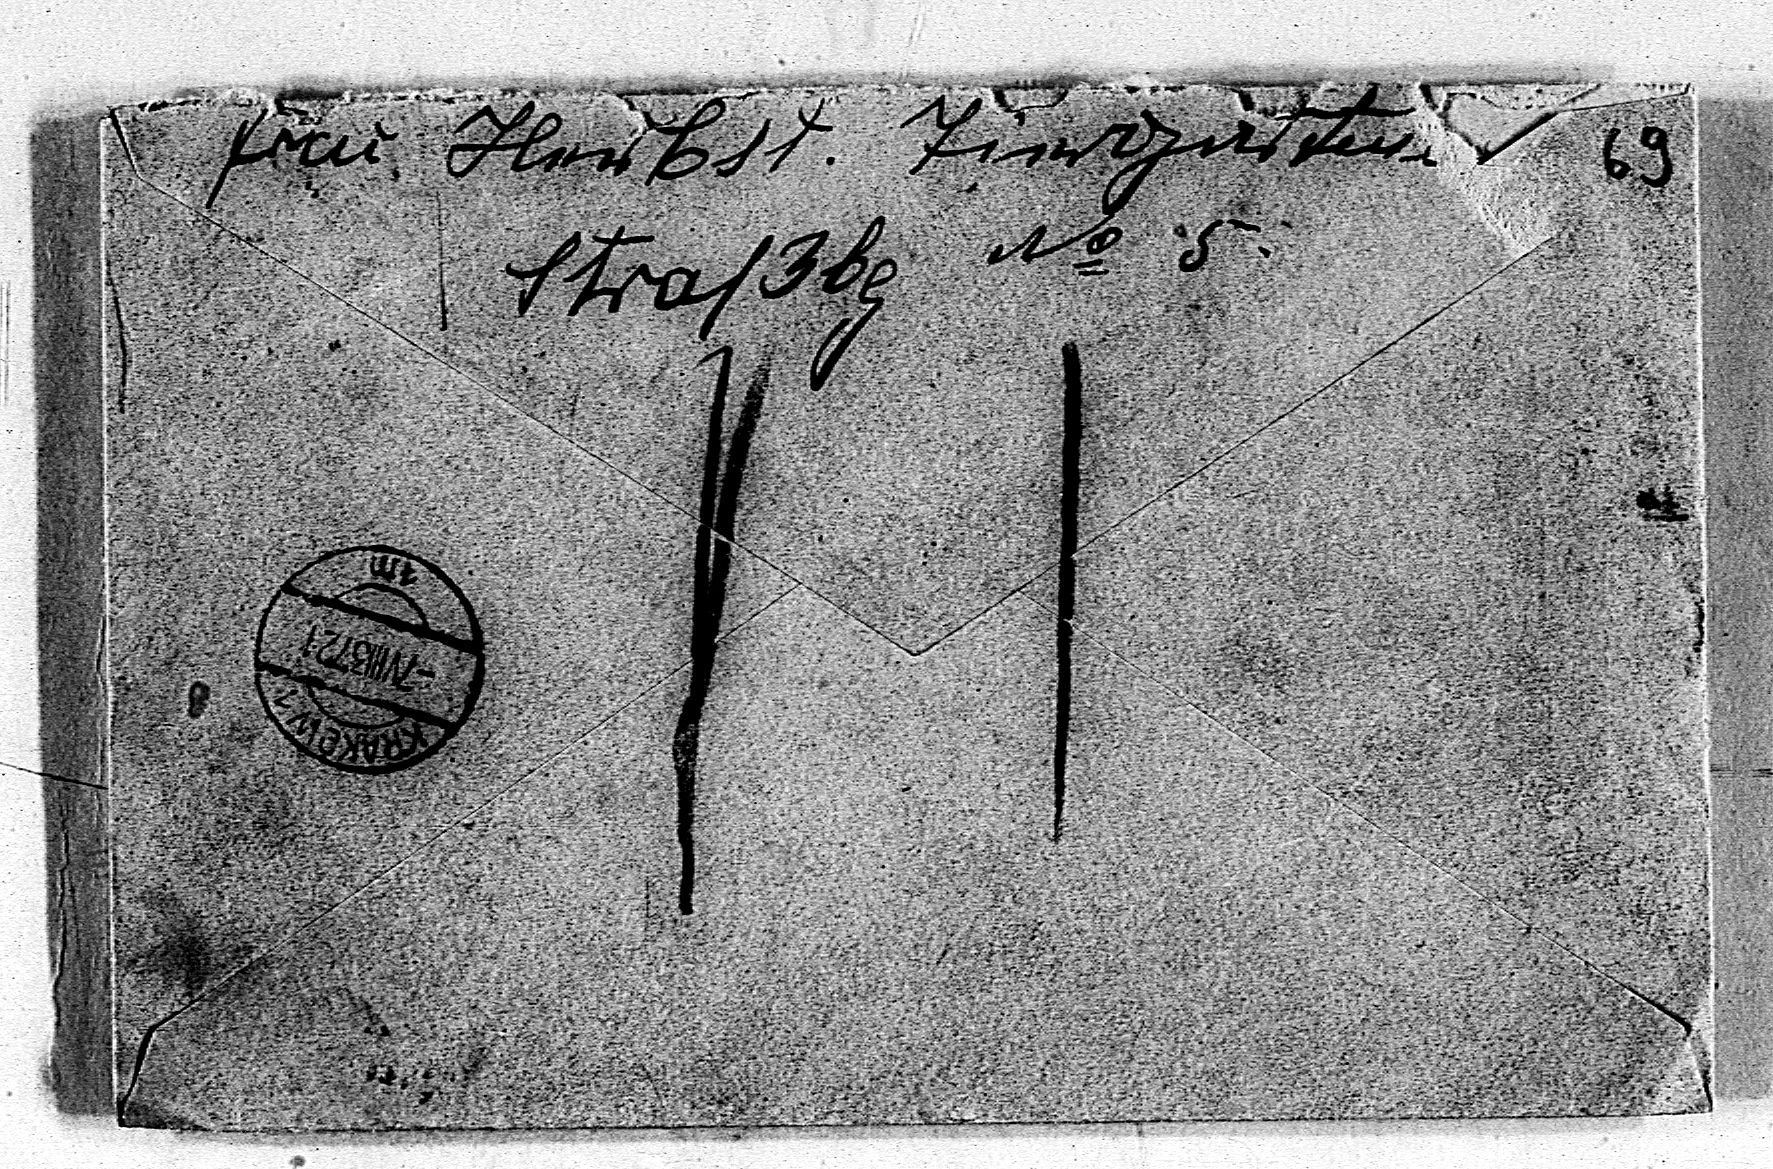 Frau Herbst. Tiergarten
69
Straßbg No 5.
KRAKÓW 2
-7VIII3721
1m